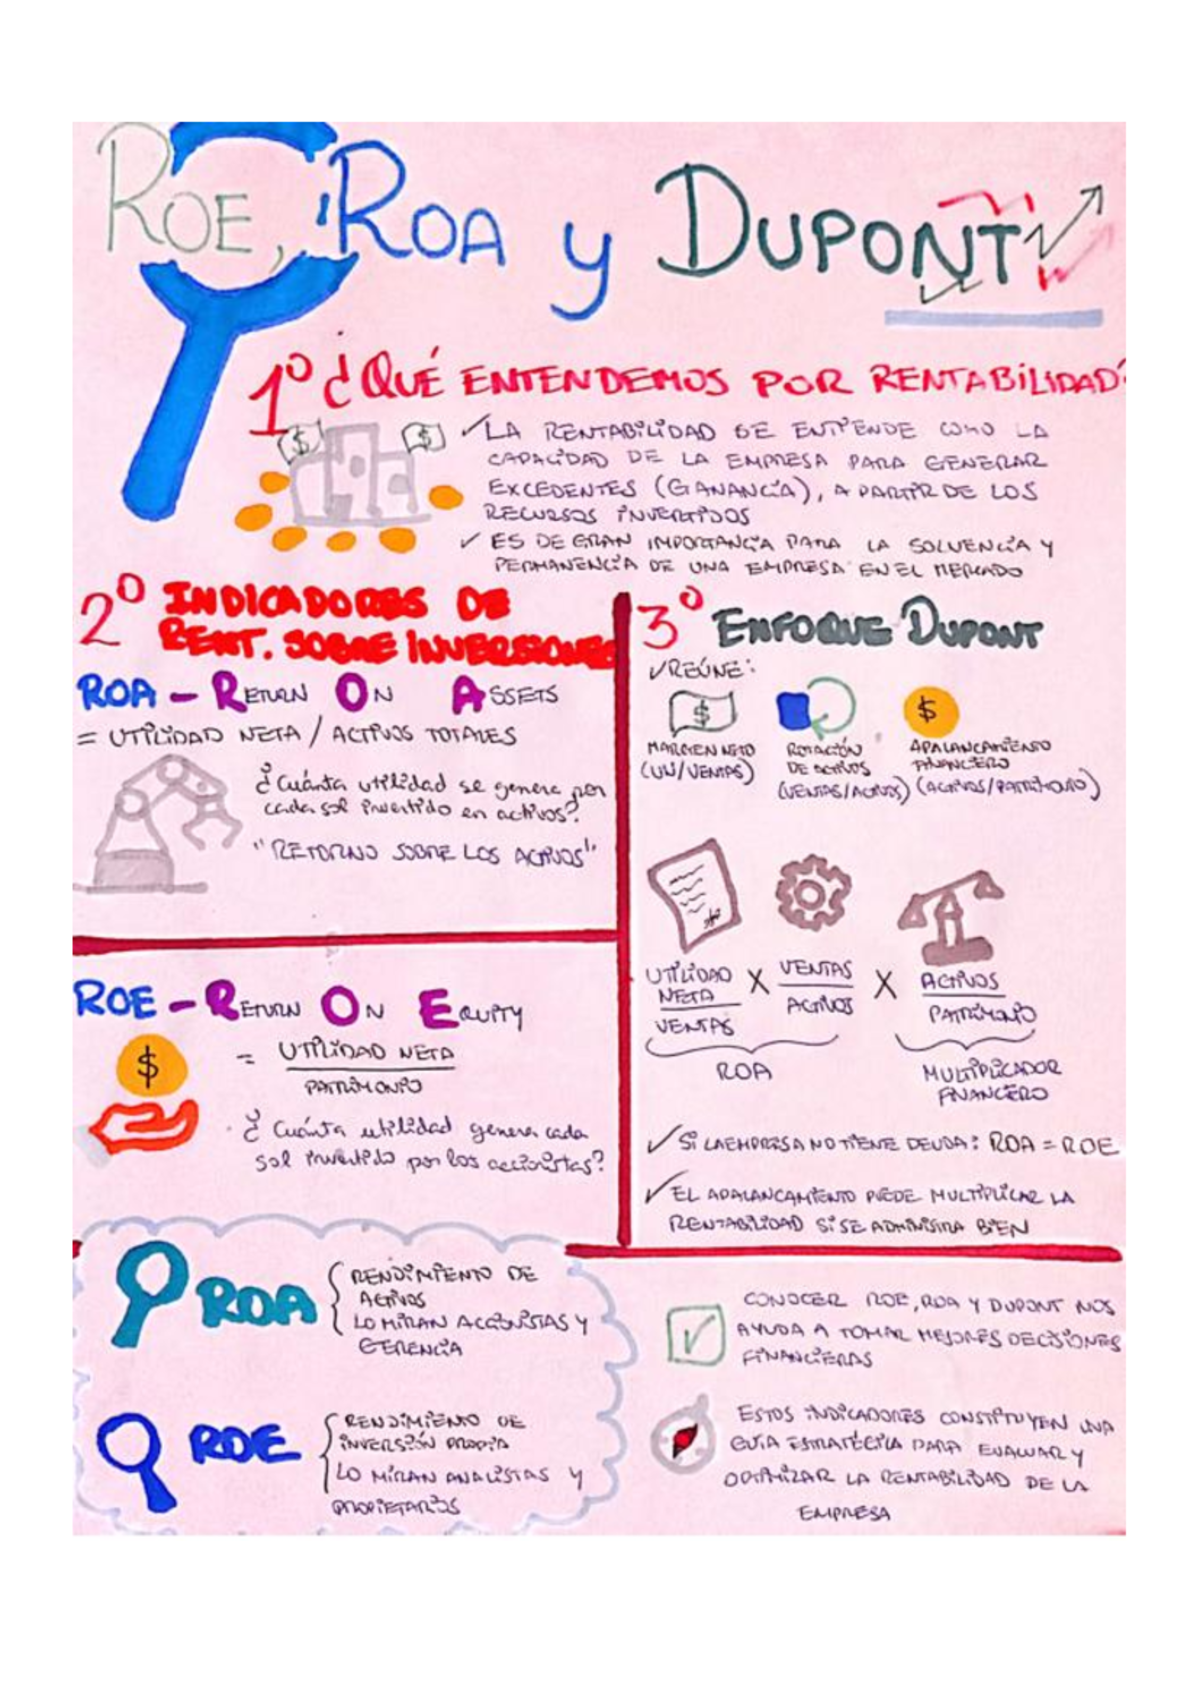 ROE, ROA y DUPONT
1º ¿QUÉ ENTENDEMOS POR RENTABILIDAD?
✓ LA RENTABILIDAD SE ENTIENDE COMO LA
CAPACIDAD DE LA EMPRESA PARA GENERAR
EXCEDENTES (GANANCIA), A PARTIR DE LOS
RECURSOS INVERTIDOS
✓ ES DE GRAN IMPORTANCIA PARA LA SOLVENCIA Y
PERMANENCIA DE UNA EMPRESA EN EL MERCADO
2º INDICADORES DE
RENT. SOBRE INVERSIONES
ROA - RETURN ON ASSETS
= UTILIDAD NETA / ACTIVOS TOTALES
¿Cuánta utilidad se genera por
cada sol invertido en activos?
"RETORNO SOBRE LOS ACTIVOS"
ROE - RETURN ON EQUITY
$
= UTILIDAD NETA
PATRIMONIO
¿Cuánta utilidad genera cada
sol invertido por los accionistas?
3º ENFOQUE DUPONT
✓ REÚNE:
$ $
MARGEN NETO
(UN/VENTAS)
ROTACIÓN
DE ACTIVOS
(VENTAS/ACTIVOS)
APALANCAMIENTO
FINANCIERO
(ACTIVOS/PATRIMONIO)
UTILIDAD
NETA
VENTAS
X
VENTAS
ACTIVOS
X
ACTIVOS
PATRIMONIO
ROA
MULTIPLICADOR
FINANCIERO
✓ SI LA EMPRESA NO TIENE DEUDA: ROA = ROE
✓ EL APALANCAMIENTO PUEDE MULTIPLICAR LA
RENTABILIDAD SI SE ADMINISTRA BIEN
ROA
RENDIMIENTO DE
ACTIVOS
LO MIRAN ACCIONISTAS Y
GERENCIA
ROE
RENDIMIENTO DE
INVERSIÓN PROPIA
LO MIRAN ANALISTAS Y
PROPIETARIOS
CONOCER ROE, ROA Y DUPONT NOS
AYUDA A TOMAR MEJORES DECISIONES
FINANCIERAS
ESTOS INDICADORES CONSTITUYEN UNA
GUÍA ESTRATÉGICA PARA EVALUAR Y
OPTIMIZAR LA RENTABILIDAD DE LA
EMPRESA